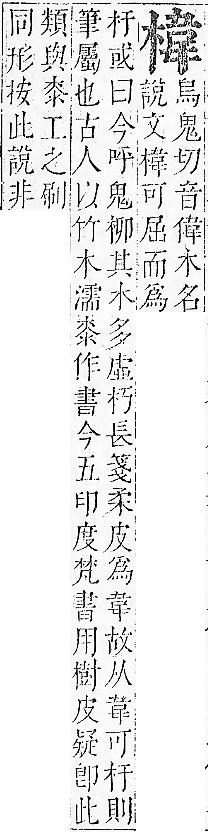 椲
烏鬼切音偉木名
說文椲可屈而爲
杅或曰今呼鬼柳其木多虛朽長箋柔皮爲韋故从韋可杅則
筆屬也古人以竹木濡桼作書今五印度梵書用樹皮疑卽此
類與桼工之刷
同形按此說非